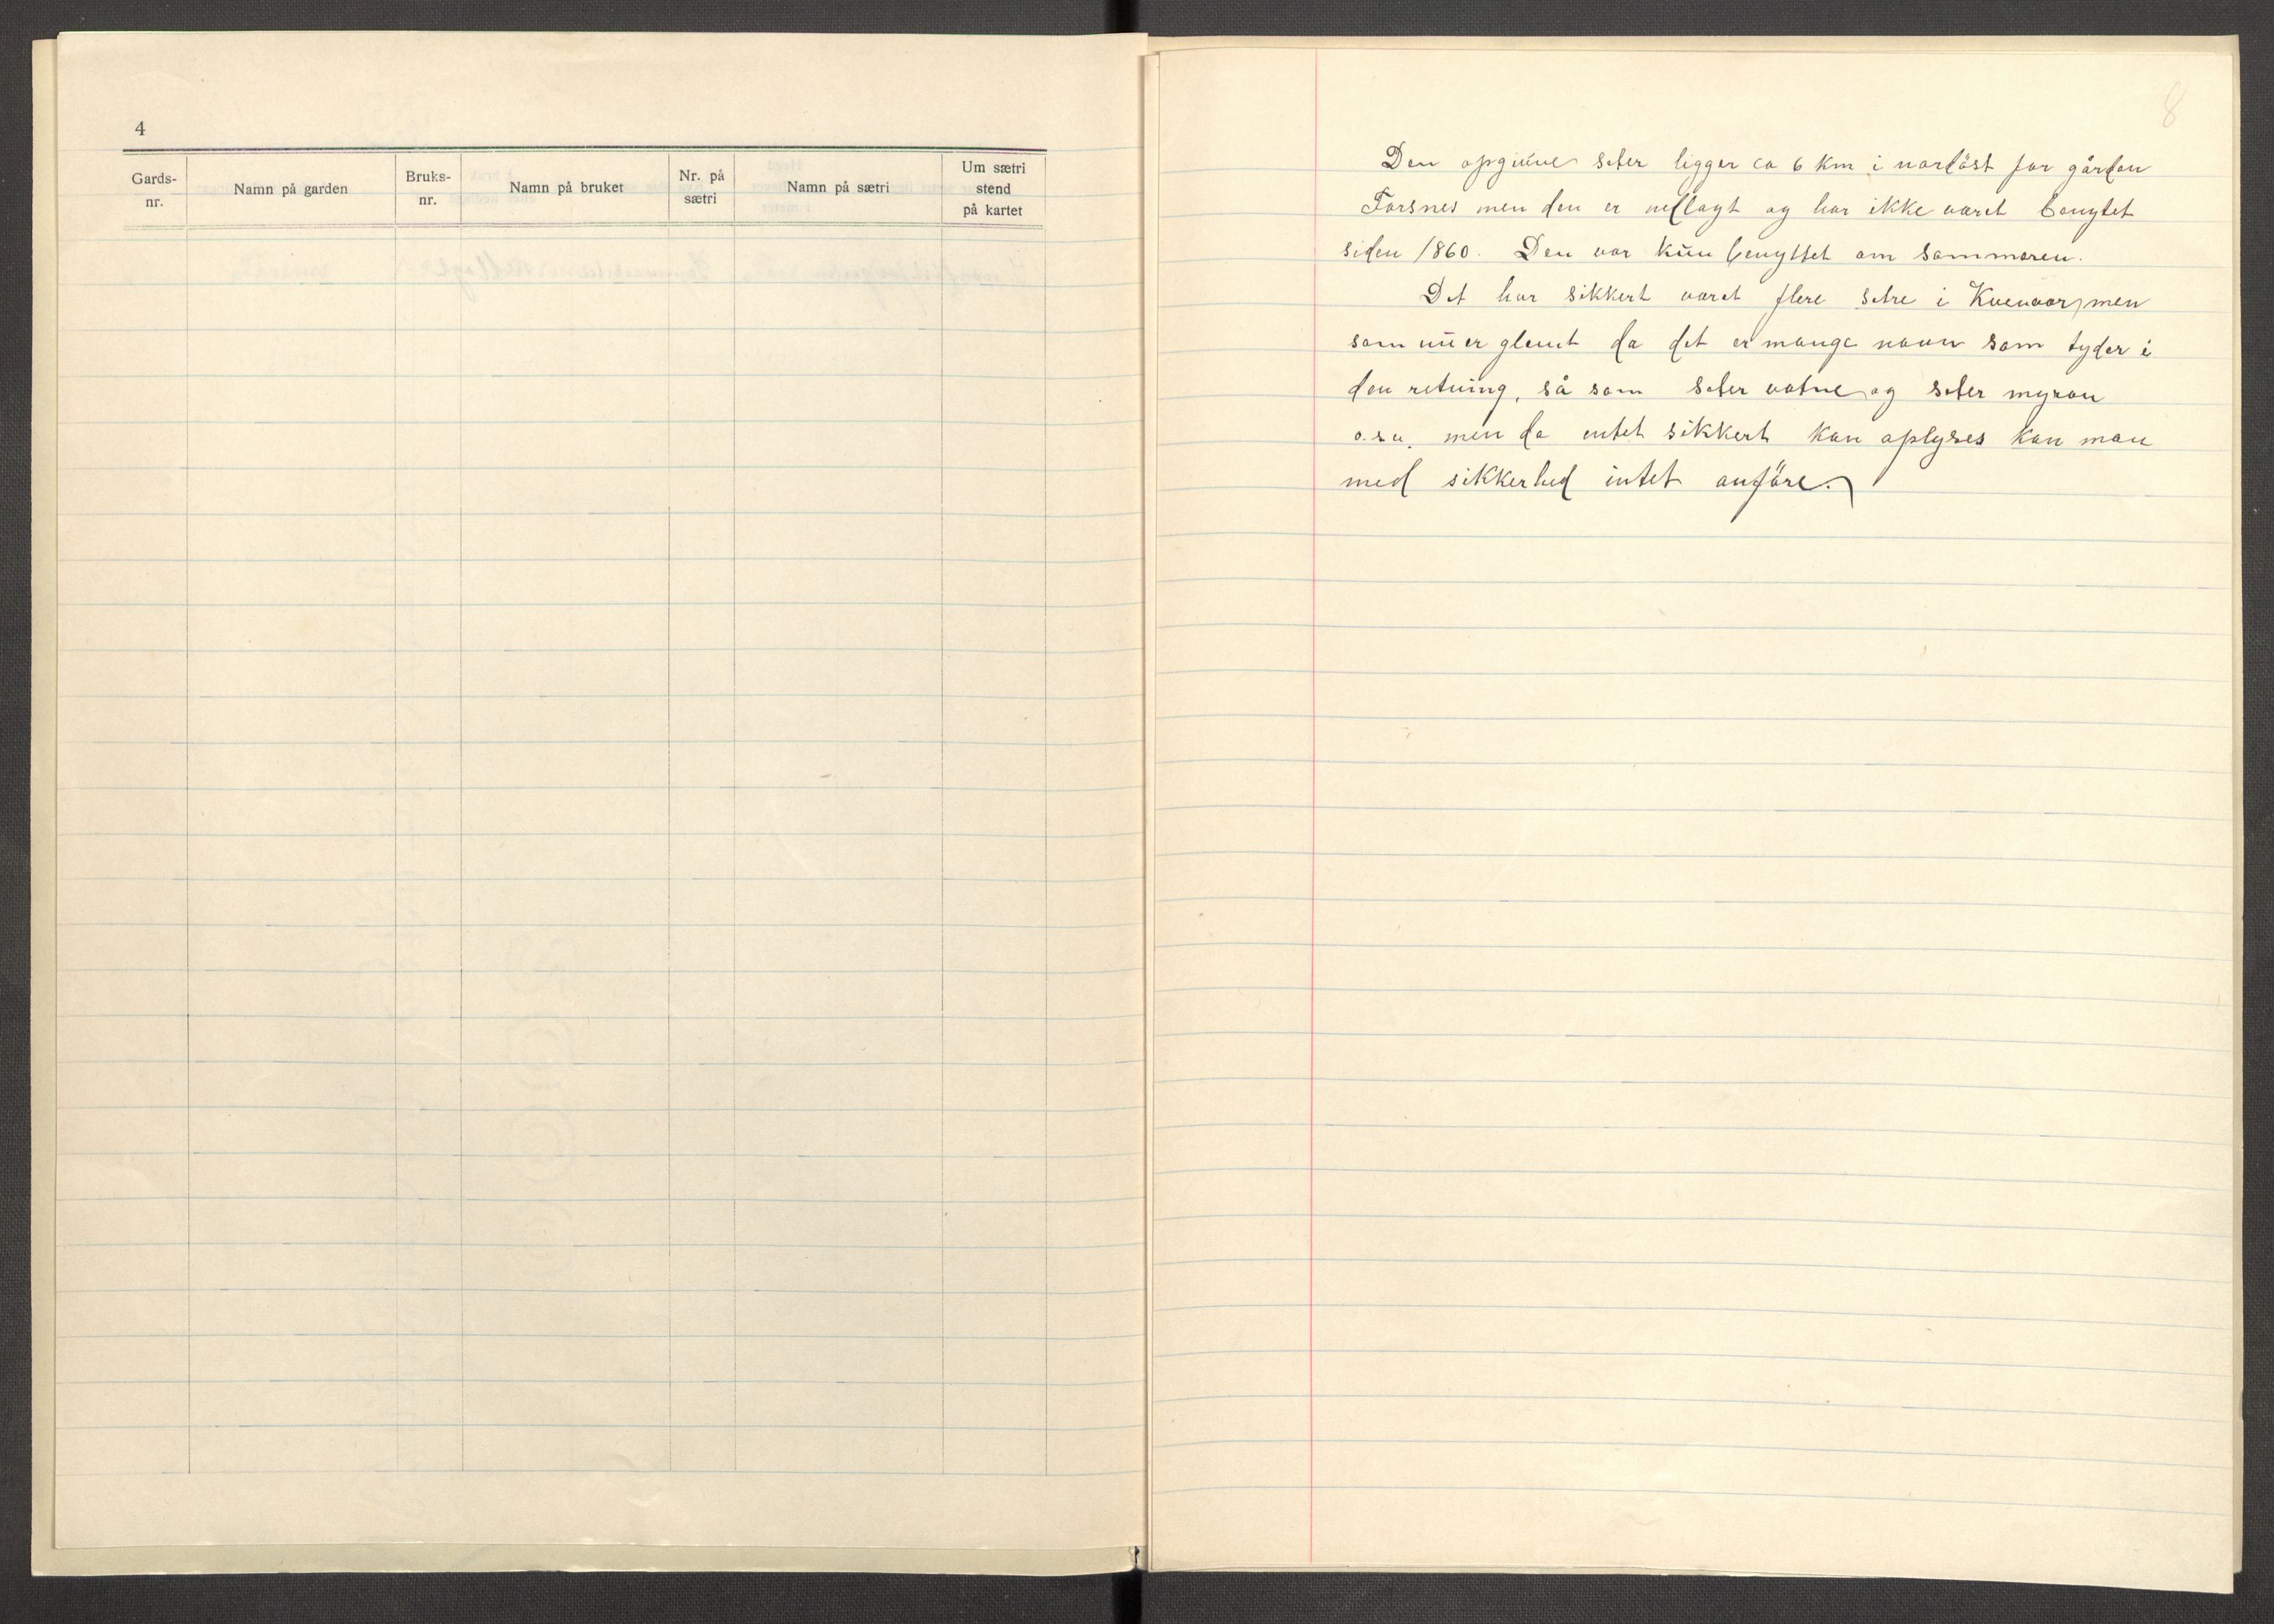 4
Gards-
nr.
Namn på garden
Bruks-
nr.
Namn på bruket
Nr. på
sætri
Namn på sætri
Um sætri
stend
på kartet
8
Den opgivne seter ligger ca 6 Km i nordöst for gården
Forsnes men den er nedlagt og har ikke været benytet
siden 1860. Den var kun benyttet om sommeren.
Det har sikkert været flere setre i Kvenvær, men
som nu er glemt da det er mange navn som tyder i
den retning, så som Seter vatne og seter myran
o.s.v. men da intet sikkert kan oplyses kan man
med sikkerhed intet anföre.